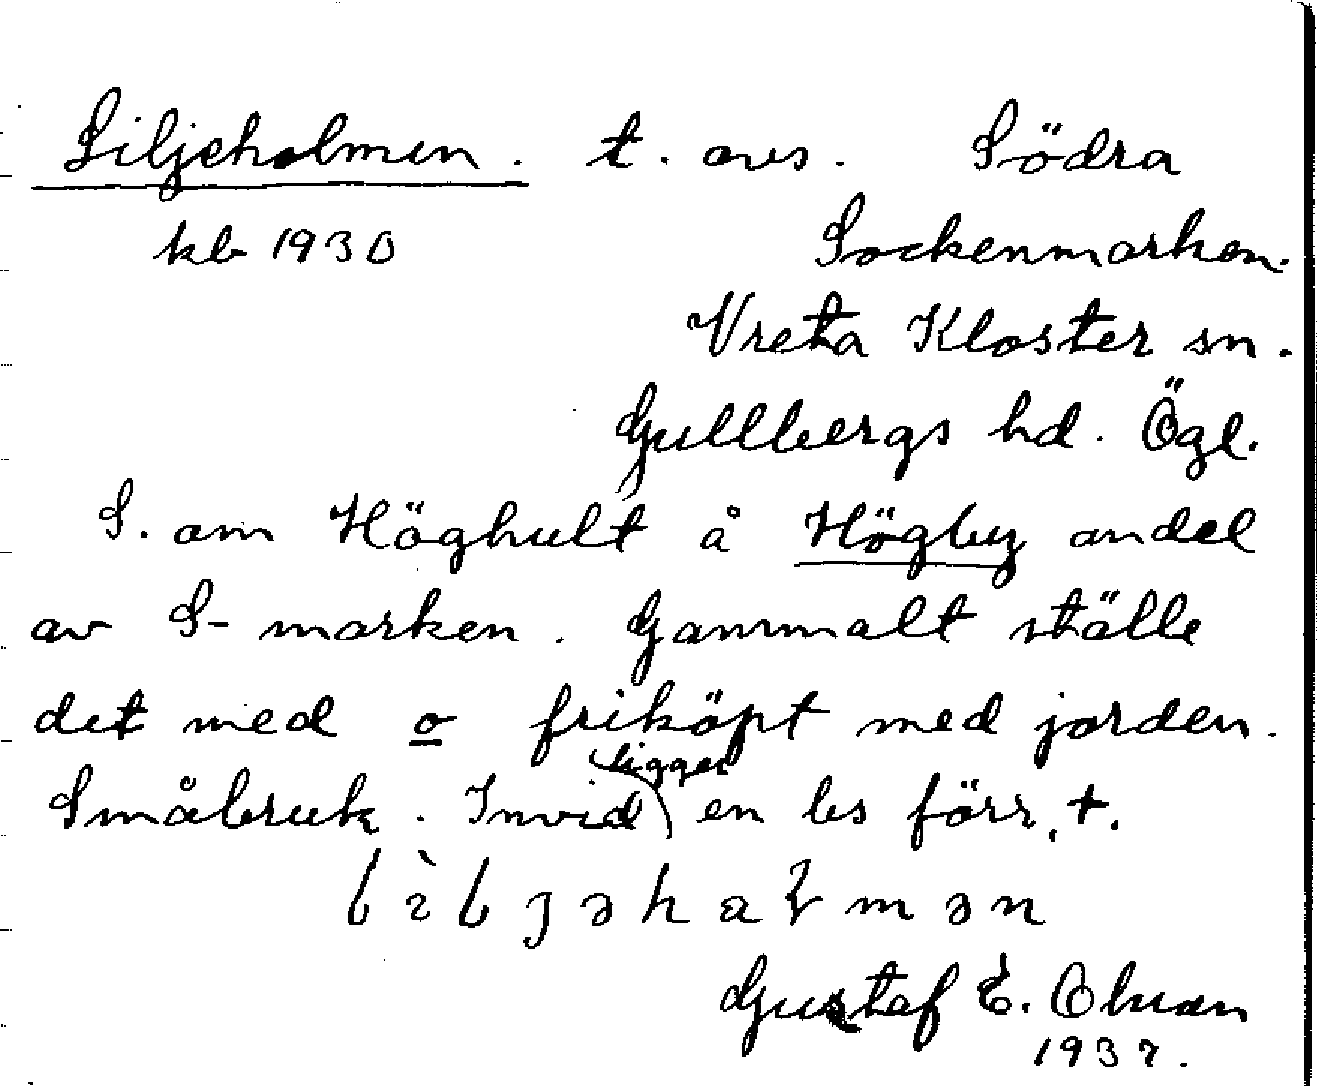 Liljeholmen. t. avs. Södra
kb 1930 Sockenmarken.
Vreta Kloster sn.
Gullbergs hd. Ögl.
S. om Höghult å Högby andel
av S-marken. Gammalt ställe
det med o friköpt med jorden.
Småbruk. Invid ligger en bs förr, t.
Gustaf E.
1937.